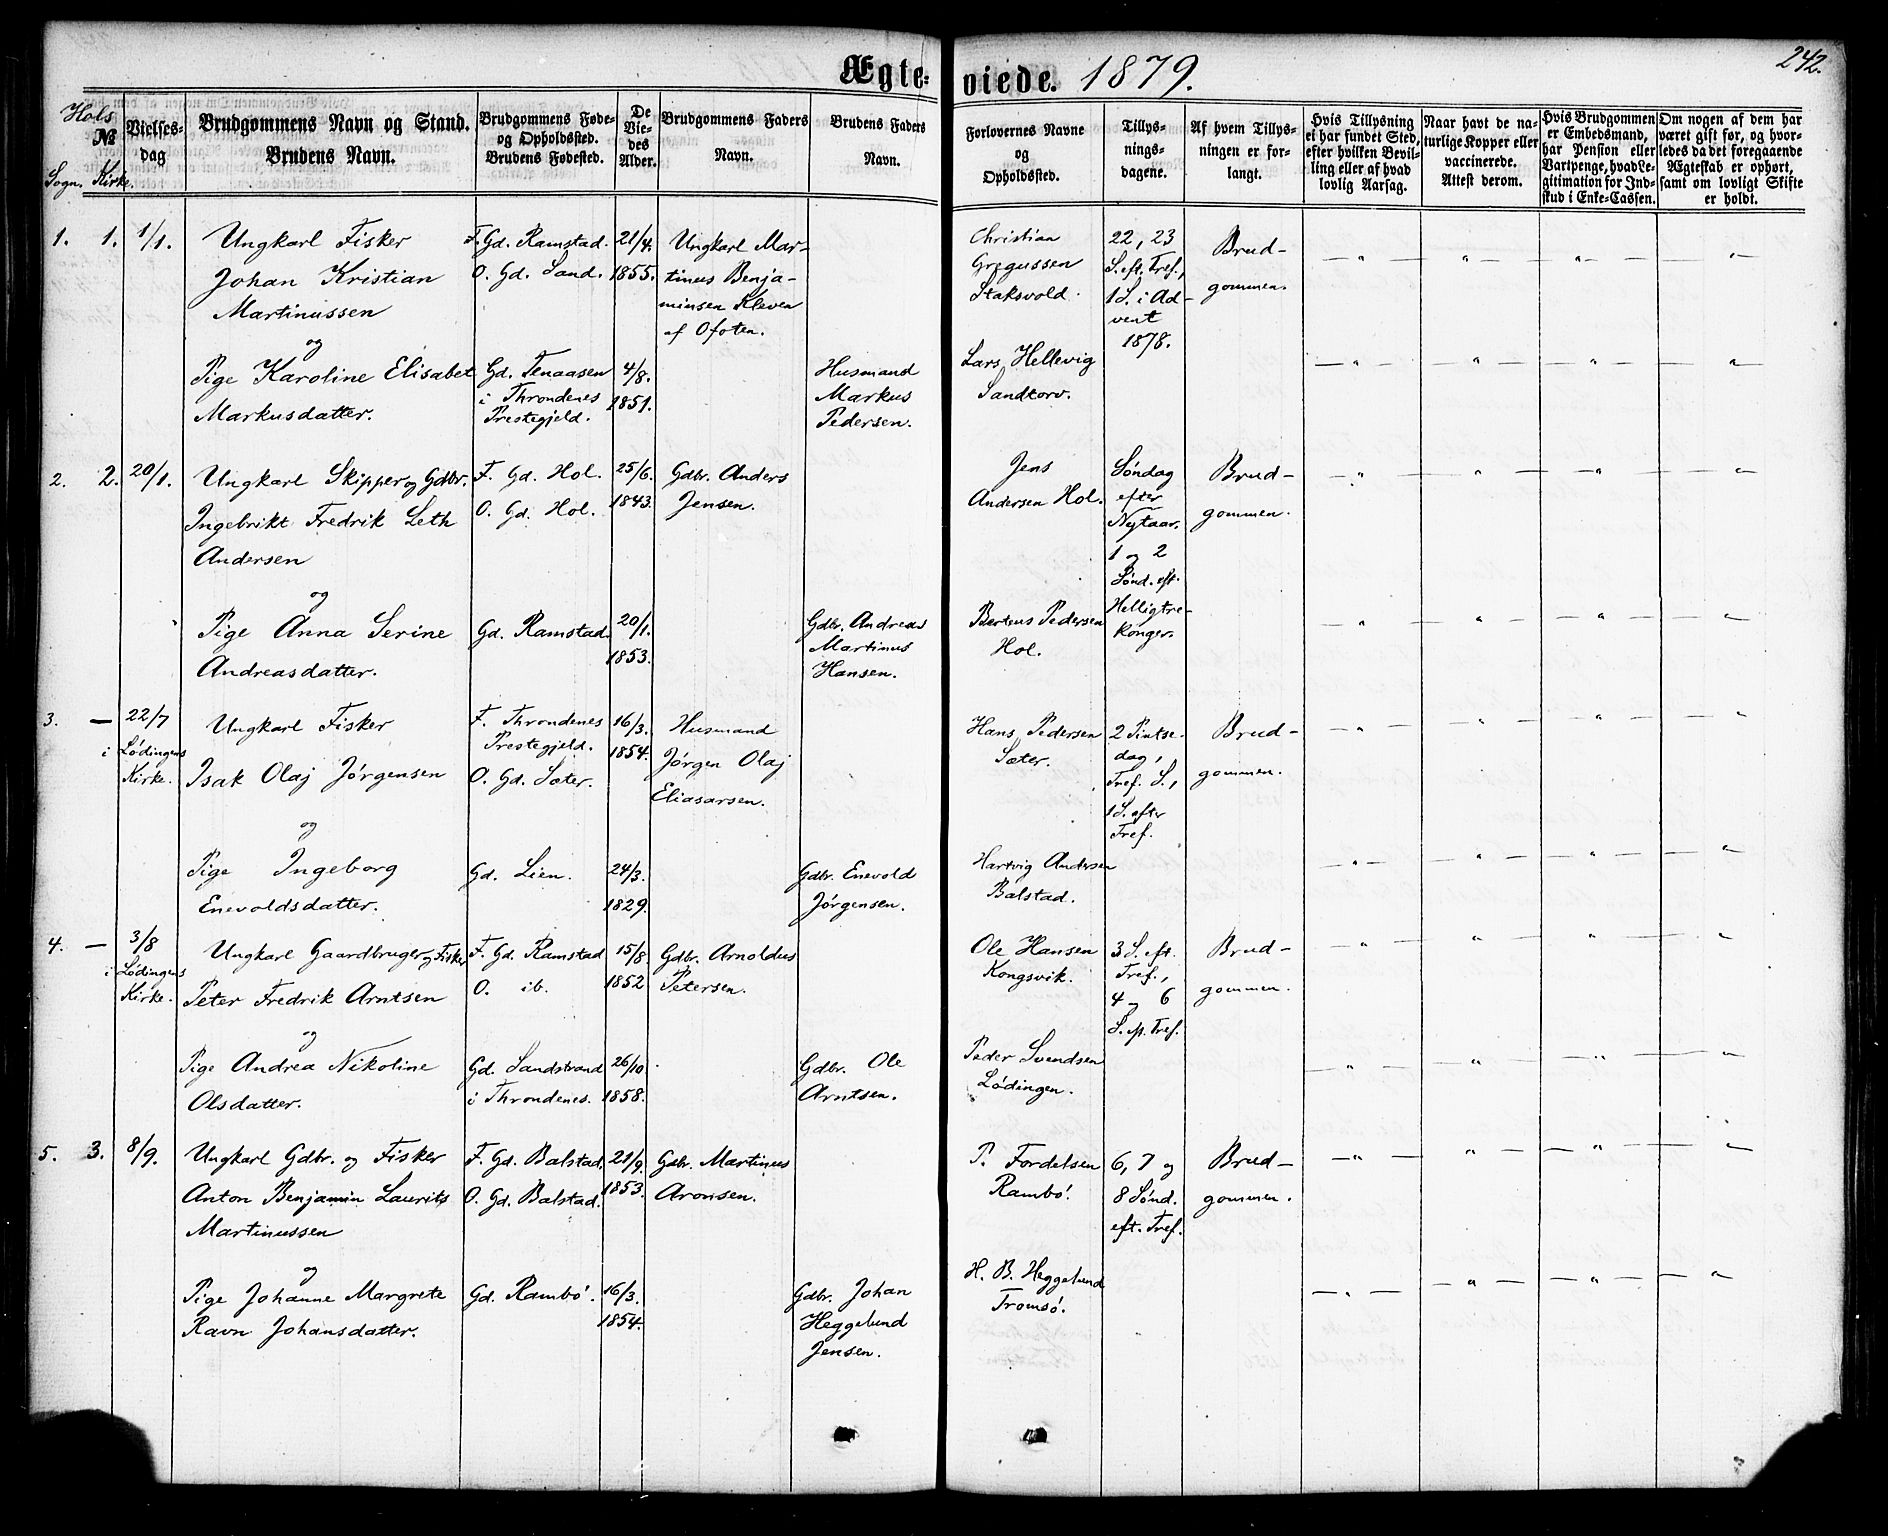 Ægte-
viede. 1879.
242.
Hols
№
Sogn. Kirke.
Vielses-
dag
Brudgommens Navn og Stand.
Brudens Navn.
Brudgommens Føde-
og Opholdssted.
Brudens Fødested.
De
Vie-
des
Alder.
Brudgommens Faders
Navn.
Brudens Faders
Navn.
Forlovernes Navne
og
Opholdssted.
Tillys-
nings-
dagene.
Af hvem Tillys-
ningen er for-
langt.
Hvis Tillysning
ei har fundet Sted,
efter hvilken Bevil-
ling eller af hvad
lovlig Aarsag.
Naar havt de na-
turlige Kopper eller
vaccinerede.
Attest derom.
Hvis Brudgommen
er Embedsmand,
har Pension eller
Vartpenge, hvad Le-
gitimation for Ind-
skud i Enke-Cassen.
Om nogen af dem har
været gift før, og hvor-
ledes da det foregaaende
Ægteskab er ophørt,
samt om lovligt Skifte
er holdt.
1. 1. 1/1.
Ungkarl Fisker
Johan Kristian
Martinussen
og
Pige Karoline Elisabet
Markusdatter.
F. Gd. Ramstad.
O. Gd. Sand.
Gd. Tenaasen
i Throndenes
Prestegjeld.
21/4.
1855.
4/8.
1851.
Ungkarl Mar-
tinus Benja-
minsen Kleven
af Ofoten.
Husmand
Markus
Pedersen.
Christian
Gregussen
Staksvold.
Lars Hellevig
Sandtorv.
22, 23
S. eft. Tref.,
1 S. i Ad-
vent
1878.
Brud-
gommen.
2. 2. 20/1.
Ungkarl Skipper og Gdbr.
Ingebrikt Fredrik Leth
Andersen
og
Pige Anna Serine
Andreasdatter.
F. Gd. Hol.
O. Gd. Hol.
Gd. Ramstad.
25/6.
1843.
20/1.
1853.
Gdbr. Anders
Jensen.
Gdbr. Andreas
Martinus
Hansen.
Jens
Andersen Hol.
Bertens Pedersen
Hol.
Søndag
efter
Nytaar.
1 og 2
Sønd. eft.
Helligtre-
konger.
Brud-
gommen.
3. — 22/7
i Lödingens
Kirke.
Ungkarl Fisker
Isak Olaj Jörgensen
og
Pige Ingeborg
Enevoldsdatter.
F. Throndenes
Prestegjeld.
O. Gd. Sæter.
Gd. Lien.
16/3.
1854.
24/3.
1829.
Husmand
Jörgen Olaj
Eliasarsen.
Gdbr. Enevold
Jörgensen.
Hans Pedersen
Sæter.
Hartvig Andersen
Balstad.
2 Pintse-
dag,
Tref. S.,
1 S. efter
Tref.
Brud-
gommen.
4. — 3/8
i Lödingens
Kirke.
Ungkarl Gaardbruger og Fisker
Peter Fredrik Arntsen
og
Pige Andrea Nikoline
Olsdatter.
F. Gd. Ramstad
O. ib.
Gd. Sandstrand
i Throndenes.
15/8.
1852
26/10
1858.
Gdbr. Arnoldus
Petersen.
Gdbr. Ole
Arntsen.
Ole Hansen
Kongsvik.
Peder Svendsen
Lödingen.
3 S. eft.
Tref.,
4 og 6
S. eft. Tref.
Brud-
gommen.
5. 3. 8/9.
Ungkarl Gdbr. og Fisker
Anton Benjamin Laurits
Martinussen
og
Pige Johanne Margrete
Ravn Johansdatter.
F. Gd. Balstad.
O. Gd. Balstad.
Gd. Rambö.
21/9.
1853.
16/3.
1854.
Gdbr. Martinus
Aronsen.
Gdbr. Johan
Heggelund
Jensen.
P. Fordelsen
Rambö.
H. B. Heggelund
Tromsö.
6, 7 og
8 Sønd.
eft. Tref.
Brud-
gommen.